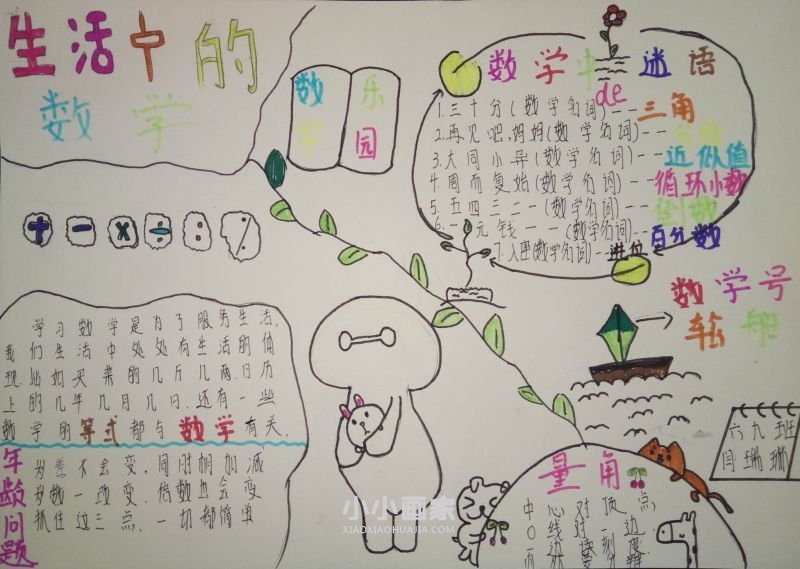 生活中的
数学
数学
乐园
数学中de迷语
1.三十分(数学名词)--三角
2.再见吧,妈妈(数学名词)--分母
3.大同小异(数学名词)--近似值
4.周而复始(数学名词)--循环小数
5.五四三二一(数学名词)--倒数
6.一元钱——(数学名词)--百分数
7.入座(数学名词)--进位
+ - × ÷ :
数学号
轮船
学习数学是为了服务生活,
我们生活中处处有生活的体
现.比如买菜的几斤几两.日历
上的几年几月几日.还有一些
数学的等式都与数学有关.
年龄问题
岁差不会变,同时相加减
岁数一改变.倍数也会变
抓住这三点,一切都简单
六九班
闫珊珊
量角
中心对顶点,
0线对一边
小小画家
XIAOXIAOHUAJIA.COM